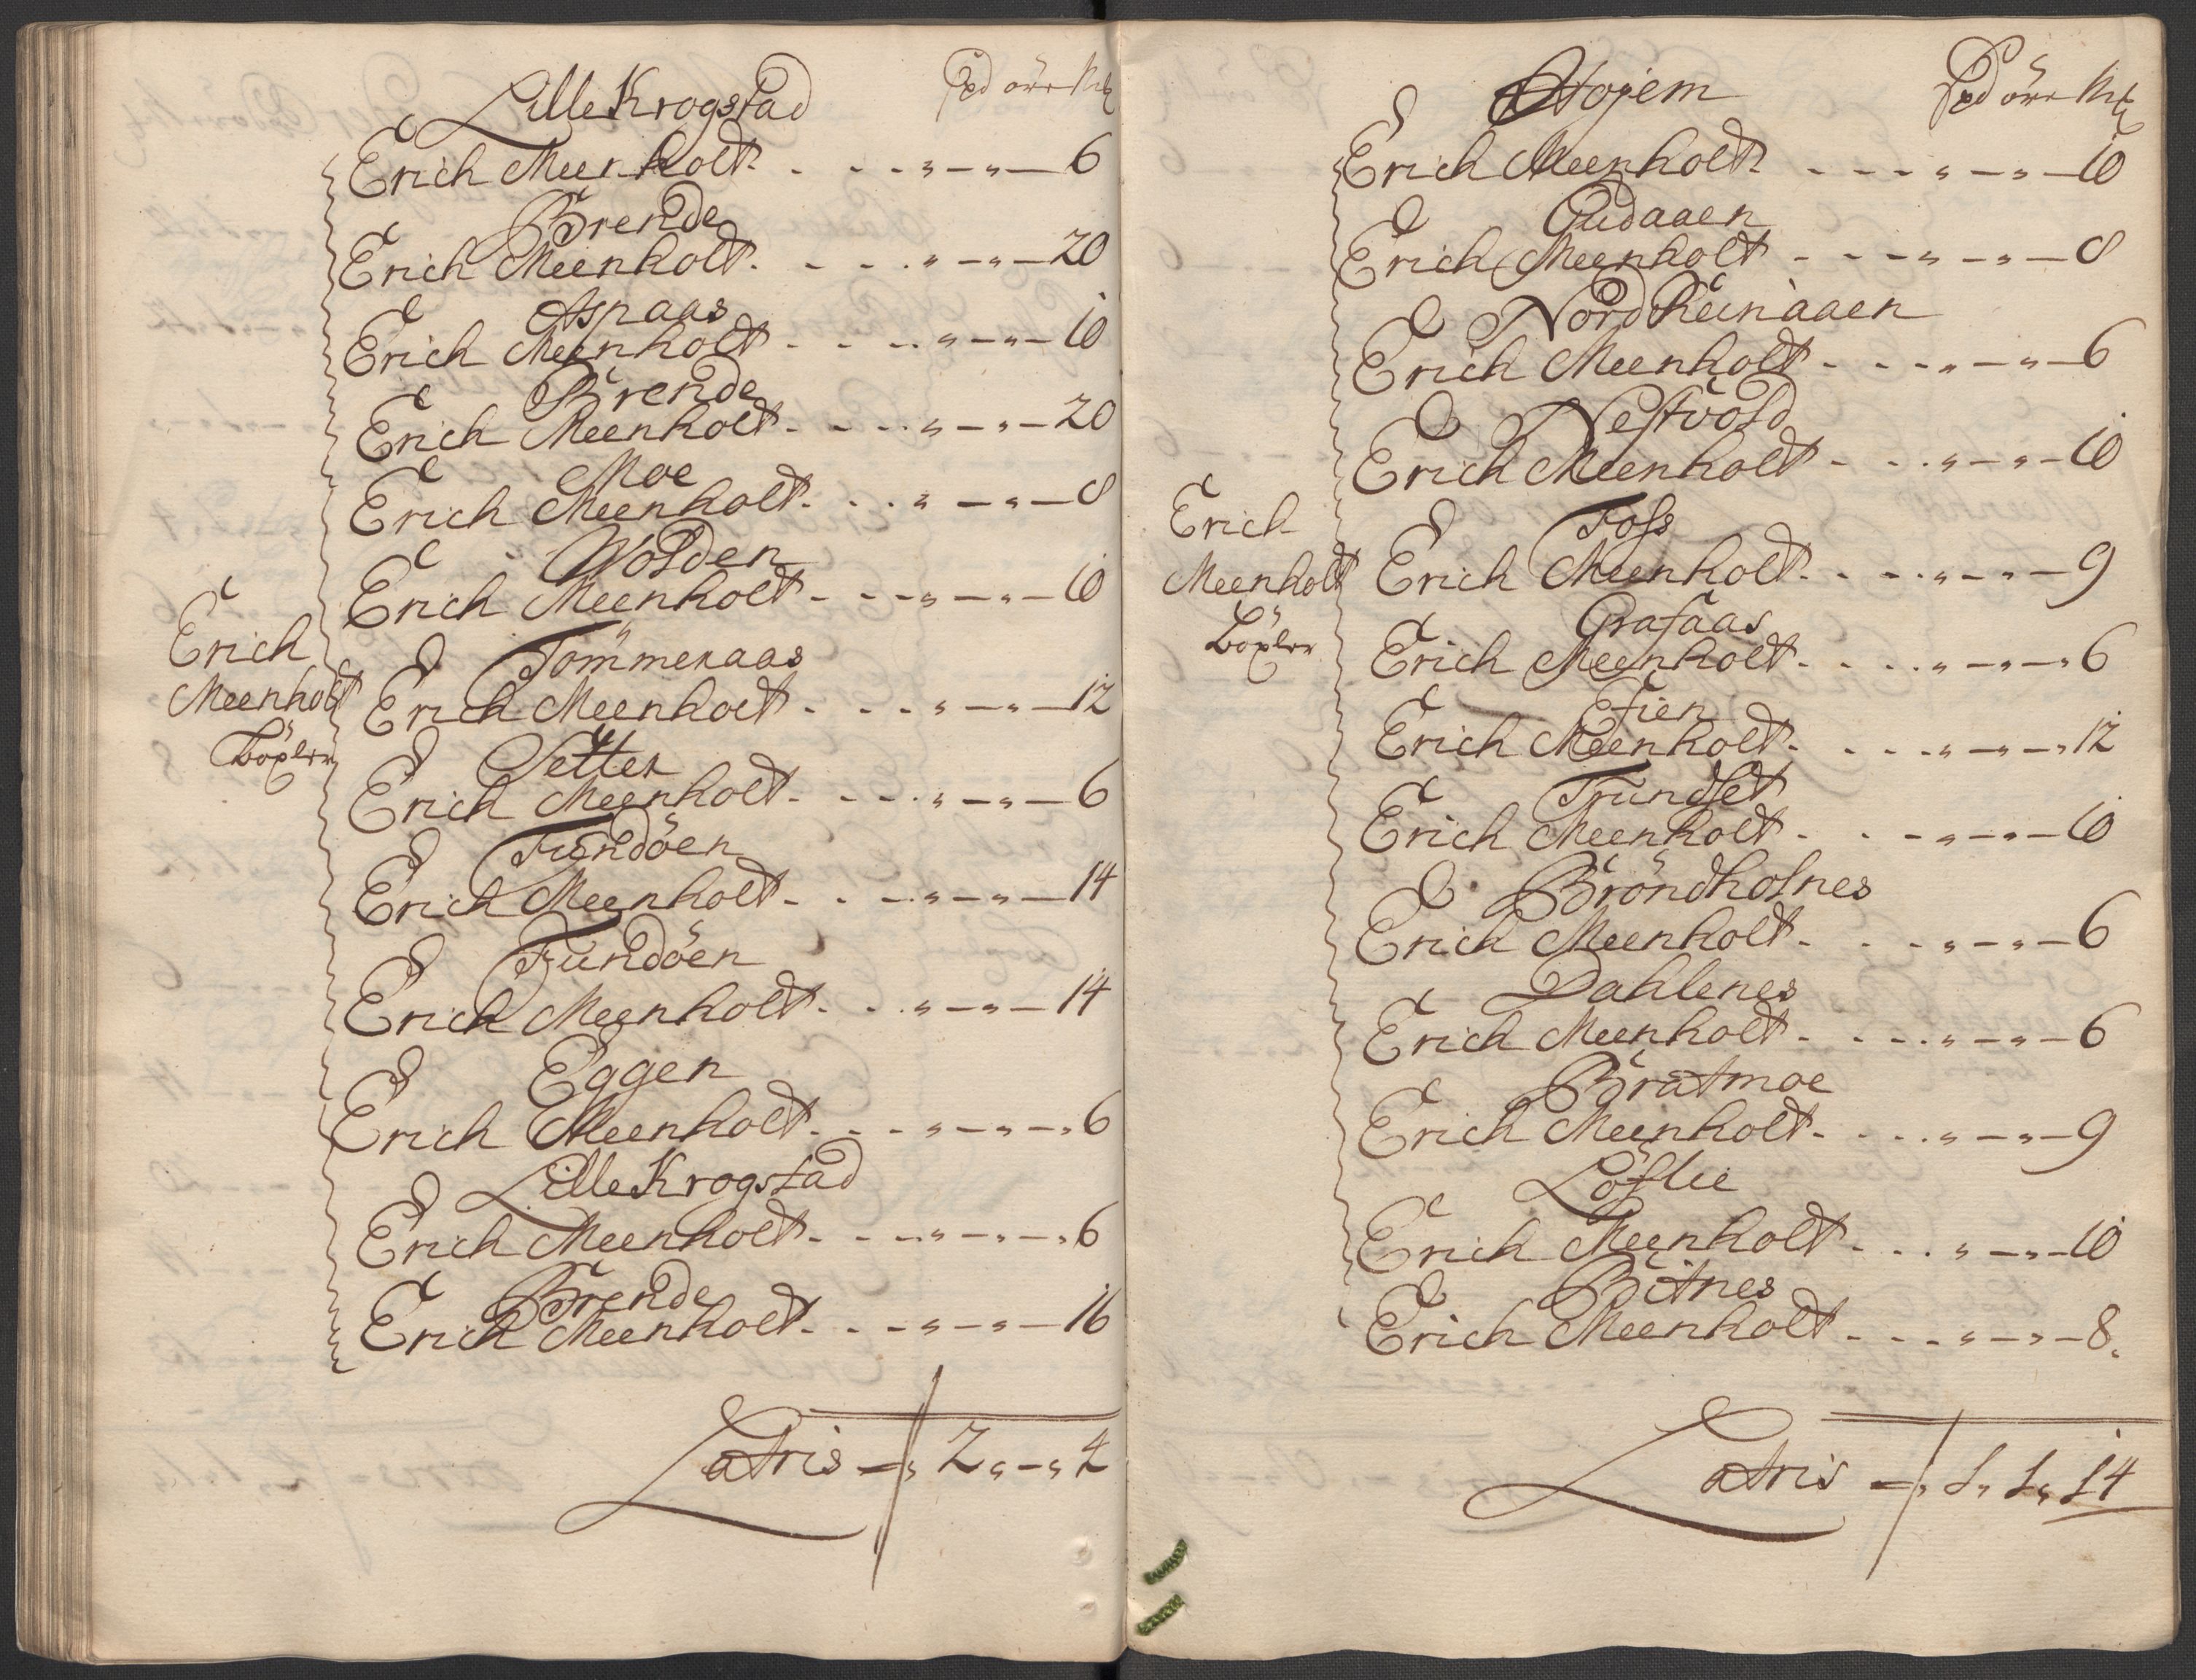 Spd örr Mk
Lille Krogstad
Erich Meenholt - - - " - " - 6
Brende
Erich Meenholt - - - " - " - 20
Aspaas
Erich Meenholt - - - " - " - 10
Brende
Erich Meenholt - - - " - " - 20
Moe
Erich Meenholt - - - " - " - 8
Wolden
Erich Meenholt - - - " - " - 10
Erich
Meenholt
böxler
Tömmeraas
Erich Meenholt - - - " - " - 12
Setter
Erich Meenholt - - - " - " - 6
Fundöen
Erich Meenholt - - - " - " - 14
Fundöen
Erich Meenholt - - - " - " - 14
Eggen
Erich Meenholt - - - " - " - 6
Lille Krogstad
Erich Meenholt - - - " - " - 6
Brende
Erich Meenholt - - - " - " - 16
Latris - 2 " - " 4
Spd örr Mk
Hojem
Erich Meenholt - - - " - " - 10
Gudaaen
Erich Meenholt - - - " - " - 8
Nord Reinaaen
Erich Meenholt - - - " - " - 6
Nestvold
Erich Meenholt - - - " - " - 10
Erich
Meenholt
böxler
Foss
Erich Meenholt - - - " - " - 9
Grafaas
Erich Meenholt - - - " - " - 6
Fien
Erich Meenholt - - - " - " - 12
Trundset
Erich Meenholt - - - " - " - 10
Bröndholsnes
Erich Meenholt - - - " - " - 6
Dahlenes
Erich Meenholt - - - " - " - 6
Bratmoe
Erich Meenholt - - - " - " - 9
Löflie
Erich Meenholt - - - " - " - 10
Bitnes
Erich Meenholt - - - " - " - 8
Latris - 1 " 1 " 14